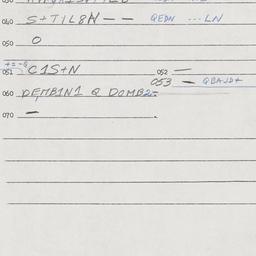 040 S+TIL8N -- QEDN ...LN
050 O
051 C1S+N 052 —
053 — QBAJD+
060 DEMBIN1 Q DOMB2-
070 —